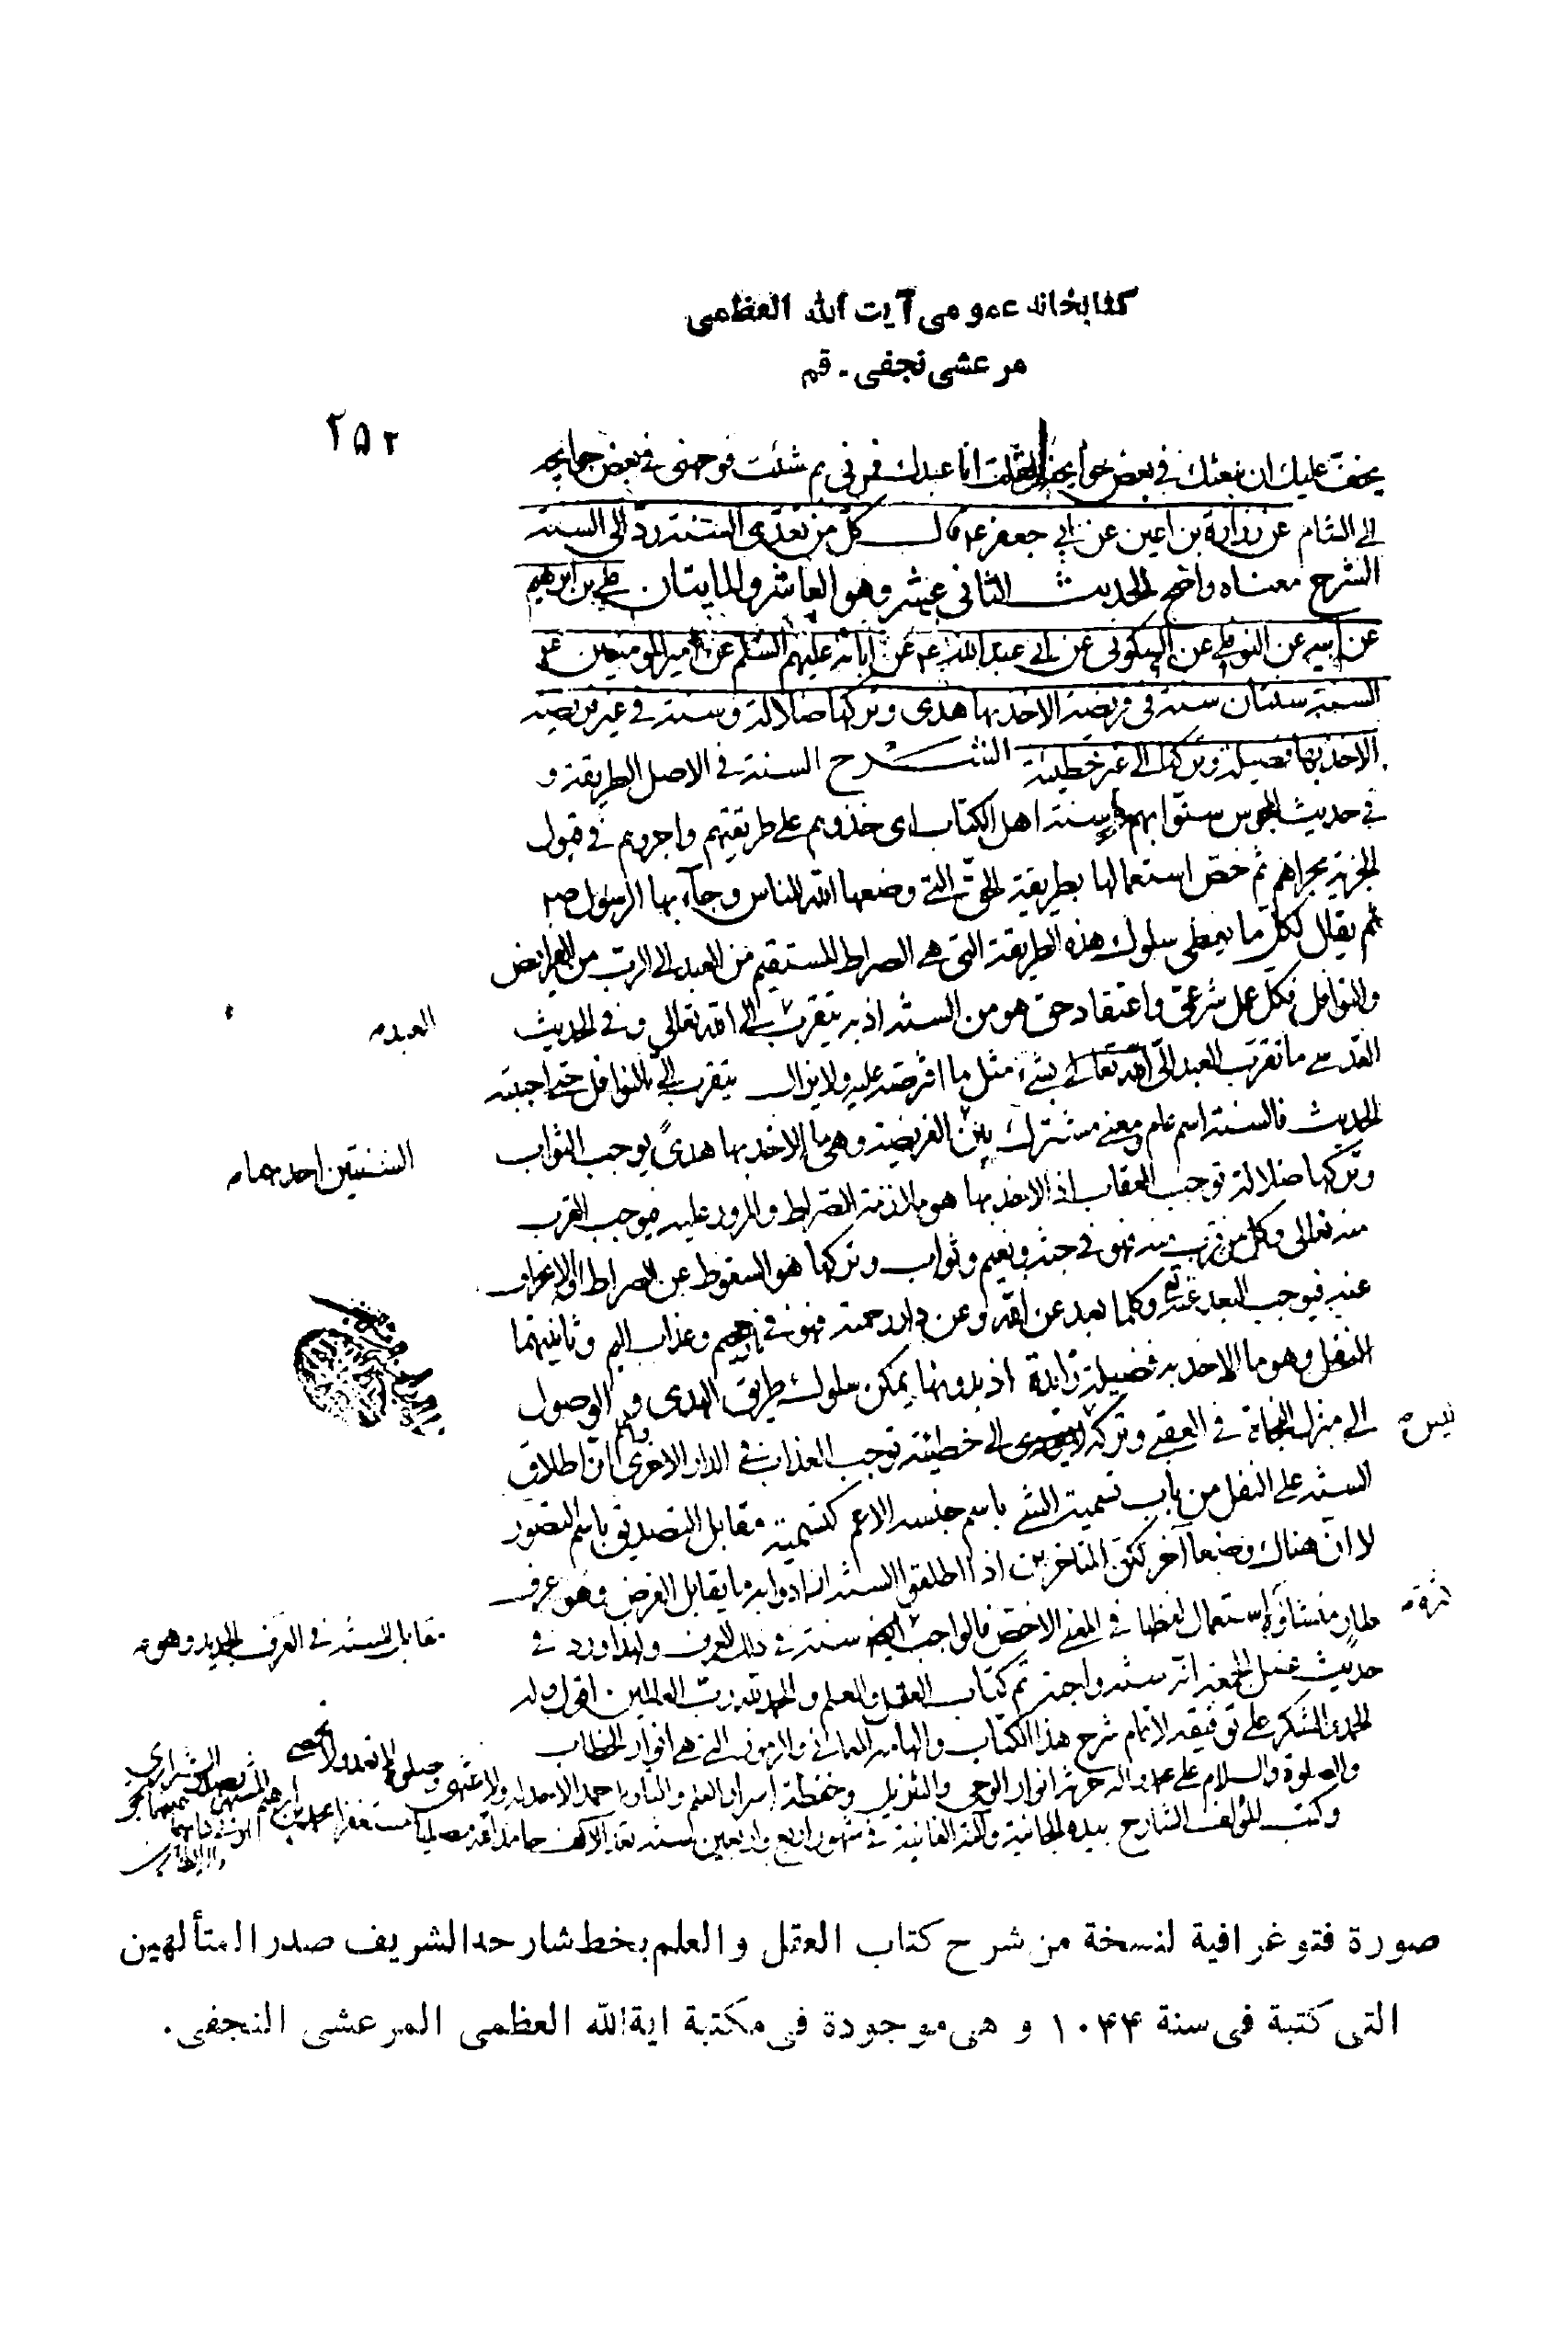 كتابخانه عمومی آیت الله العظمی
مرعشی نجفی - قم
۲۵۲
يخف عليك ان نبعثك في بعض حوايجنا فقلت انا عبدك فمرني بم شئت فوجهني في بعض حوايجه
الى الشام عن زرارة بن اعين عن ابي جعفر ع قال كل من تعدى السنة رد الى السنة
الشرح معناه واضح الحديث الثاني عشر وهو العاشر والمايتان علي بن ابرهيم
عن ابيه عن النوفلي عن السكوني عن ابي عبد الله ع عن ابائه عليهم السلم عن امير المومنين ع
السنة سنتان سنة في فريضة الاخذ بها هدى وتركها ضلالة وسنة في غير فريضة
الاخذ بها فضيلة وتركها الى غير خطيئة الشرح السنة في الاصل الطريقة و
في حديث المجوس سنوا بهم سنة اهل الكتاب اى خذوهم على طريقتهم واجروهم في قبول
الجزية مجراهم ثم خص استعمالها بطريقة الحق التي وضعها الله للناس وجآء بها الرسول ص
ثم يقال لكل ما يعطى سلوك هذه الطريقة التي هي الصراط المستقيم من العبد الى الرب من الفرايض
والنوافل فكل عمل شرعي واعتقاد حق هو من السنة اذ به يتقرب الى الله تعالى وفي الحديث
العبد
القدسي ما تقرب العبد الى الله تعالى بشيء مثل ما افرضته عليه ولا يزال يتقرب الي بالنوافل حتى احببته
الحديث فالسنة اسم عام ومعنى مشترك بين الفريضة وهي ما الاخذ بها هدىً يوجب الثواب
السنتين احدهما
وتركها ضلالة توجب العقاب اذ الاخذ بها هو ملازمة الصراط والمرور عليه فيوجب القرب
منه تعالى وكل من قرب منه فهو في جنة ونعيم وثواب وتركها هو السقوط عن الصراط او الانحراف
عنه فيوجب البعد عنه تع وكلما بعد عن الله وعن دار رحمته فهو في جحيم وعذاب اليم وثانيتهما
النفل وهو ما الاخذ به فضيلة زايدة اذ بدونها يمكن سلوك طريق الهدى و الوصول
الى منزل النجاة في العقبى وتركه لا يؤدى الى خطيئة توجب العذاب في الدار الاخرى واعلم ان اطلاق
ليس
السنة على النفل من باب تسمية الشيء باسم جنسه الاعم كتسمية مقابل التصديق باسم التصور
لا ان هناك وضعا آخر لكن المتاخرين اذا اطلقوا السنة ارادوا به ما يقابل الفرض وهو عرف
طارٍ منشاؤه استعمال لفظها في المعنى الاخص فالواجب ايضا سنة في ذلك العرف ولهذا ورد في
مقابل للسنة في العرف الجديد وهو
حديث غسل الجمعة انه سنة واجبة تم كتاب العقل والعلم والحمد لله رب العالمين اقول وله
الحمد والشكر على توفيقه لاتمام شرح هذا الكتاب والهامه المعاني والرموز التي هي انوار الخطاب
والصلوة والسلام على محمد واله خزنة انوار الوحي والتنزيل وحفظة اسرار العلم والتاويل
وكتب المؤلف الشارح بيده الجانية وآلته الفانية في شهور اربع واربعين سنة بعد الالف حامدا لله مصليا مستغفرا محمد بن ابرهيم
صورة فتوغرافية لنسخة من شرح كتاب العقل والعلم بخط شارحه الشريف صدر المتألهين
التی کتبة فی سنة ۱۰۴۴ و هی موجودة فی مکتبة ایة الله العظمی المرعشی النجفی.